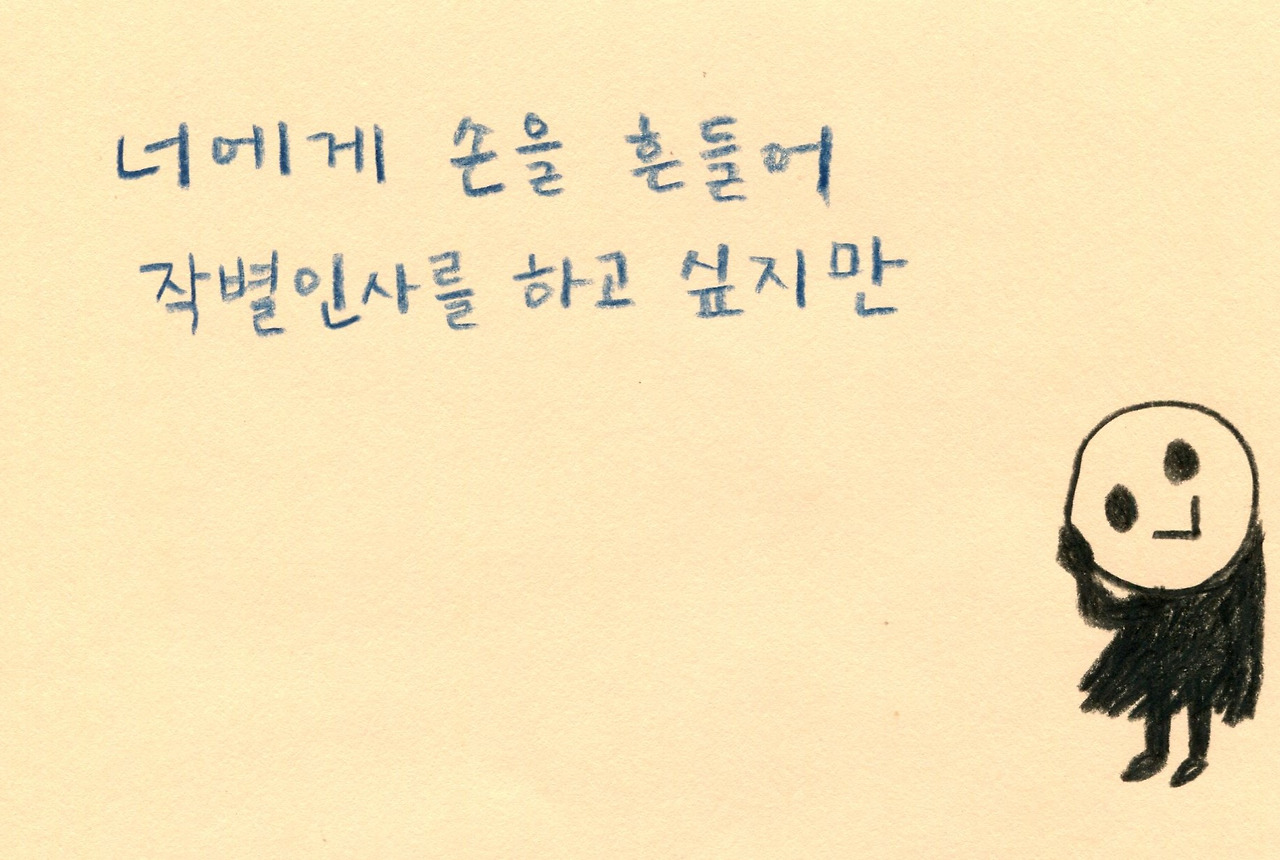 너에게 손을 흔들어
작별인사를 하고 싶지만